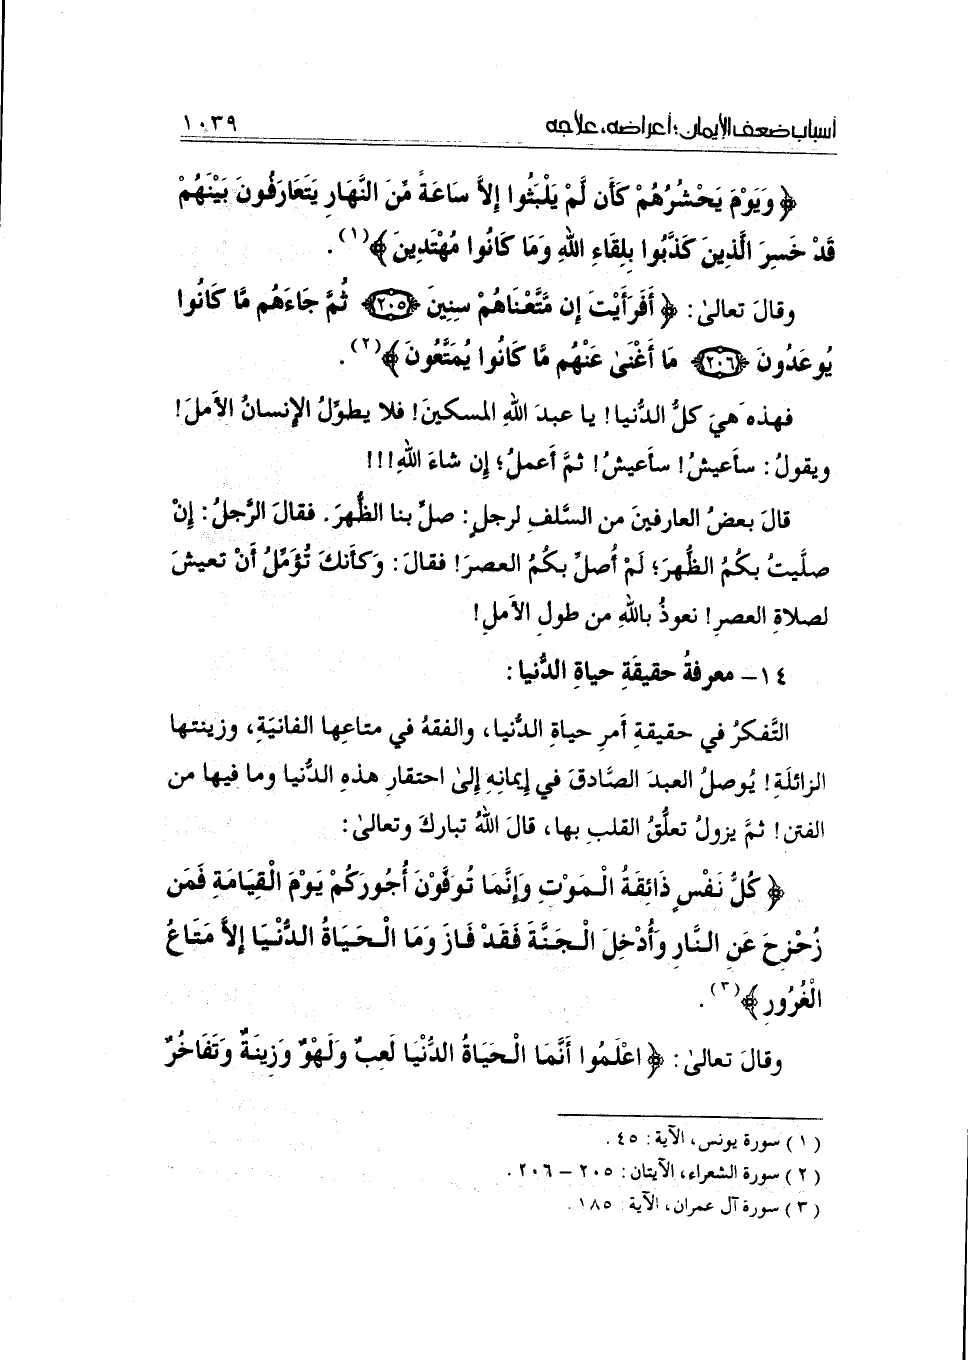 أسباب ضعف الإيمان؛ أعراضه، علاجه ١٠٣٩
﴿ وَيَوْمَ يَحْشُرُهُمْ كَأَن لَّمْ يَلْبَثُوا إِلاَّ سَاعَةً مِّنَ النَّهَارِ يَتَعَارَفُونَ بَيْنَهُمْ
قَدْ خَسِرَ الَّذِينَ كَذَّبُوا بِلِقَاءِ اللهِ وَمَا كَانُوا مُهْتَدِينَ ﴾(١).
وقالَ تعالىٰ: ﴿ أَفَرَأَيْتَ إِن مَّتَّعْنَاهُمْ سِنِينَ ﴿٢٠٥﴾ ثُمَّ جَاءَهُم مَّا كَانُوا
يُوعَدُونَ ﴿٢٠٦﴾ مَا أَغْنَىٰ عَنْهُم مَّا كَانُوا يُمَتَّعُونَ ﴾(٢).
فهذه هيَ كلُّ الدُّنيا! يا عبدَ اللهِ المسكينَ! فلا يطوِّلُ الإنسانُ الأملَ!
ويقولُ: سأعيشُ! سأعيشُ! ثمَّ أعملُ؛ إن شاءَ اللهِ!!!
قالَ بعضُ العارفينَ من السَّلفِ لرجلٍ: صلِّ بنا الظُّهرَ. فقالَ الرَّجلُ: إنْ
صلَّيتُ بكمُ الظُّهرَ؛ لمْ أُصلِّ بكمُ العصرَ! فقالَ: وكأنكَ تُؤَمِّلُ أنْ تعيشَ
لصلاةِ العصرِ! نعوذُ باللهِ من طولِ الأملِ!
١٤ـ معرفةُ حقيقَةِ حياةِ الدُّنيا:
التَّفكرُ في حقيقةِ أمرِ حياةِ الدُّنيا، والفقهُ في متاعِها الفانيَةِ، وزينتها
الزائلَةِ! يُوصلُ العبدَ الصَّادقَ في إيمانِهِ إلىٰ احتقارِ هذهِ الدُّنيا وما فيها من
الفتن! ثمَّ يزولُ تعلُّقُ القلبِ بها، قالَ اللهُ تباركَ وتعالىٰ:
﴿ كُلُّ نَفْسٍ ذَائِقَةُ الْمَوْتِ وَإِنَّمَا تُوَفَّوْنَ أُجُورَكُمْ يَوْمَ الْقِيَامَةِ فَمَن
زُحْزِحَ عَنِ النَّارِ وَأُدْخِلَ الْجَنَّةَ فَقَدْ فَازَ وَمَا الْحَيَاةُ الدُّنْيَا إِلاَّ مَتَاعُ
الْغُرُورِ ﴾(٣).
وقالَ تعالىٰ: ﴿ اعْلَمُوا أَنَّمَا الْحَيَاةُ الدُّنْيَا لَعِبٌ وَلَهْوٌ وَزِينَةٌ وَتَفَاخُرٌ
(١) سورة يونس، الآية: ٤٥.
(٢) سورة الشعراء، الآيتان: ٢٠٥ – ٢٠٦.
(٣) سورة آل عمران، الآية: ١٨٥.